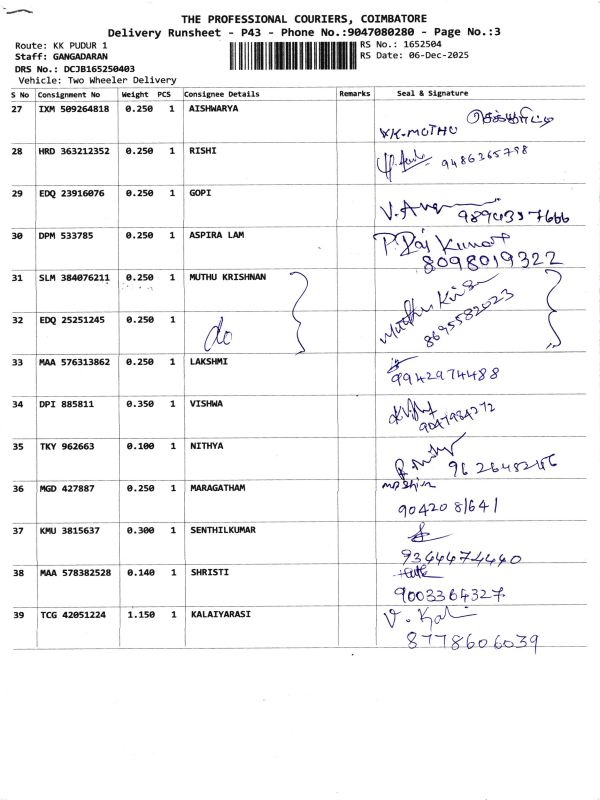 THE PROFESSIONAL COURIERS, COIMBATORE
Delivery Runsheet - P43 - Phone No.:9047080280 - Page No.:3
Route: KK PUDUR 1 RS No.: 1652504
Staff: GANGADARAN RS Date: 06-Dec-2025
DRS No.: DCJB165250403
Vehicle: Two Wheeler Delivery
S No Consignment No Weight PCS Consignee Details Remarks Seal & Signature
27 IXM 509264818 0.250 1 AISHWARYA
K.MUTHU
28 HRD 363212352 0.250 1 RISHI
9486365798
29 EDQ 23916076 0.250 1 GOPI
30 DPM 533785 0.250 1 ASPIRA LAM P. Raj Kumar
8098019322
31 SLM 384076211 0.250 1 MUTHU KRISHNAN
32 EDQ 25251245 0.250 1 do
8695582023
33 MAA 576313862 0.250 1 LAKSHMI
9942974488
34 DPI 885811 0.350 1 VISHWA
9047984272
35 TKY 962663 0.100 1 NITHYA
36 MGD 427887 0.250 1 MARAGATHAM
9042081641
37 KMU 3815637 0.300 1 SENTHILKUMAR
9344474440
38 MAA 578382528 0.140 1 SHRISTI
9003364327
39 TCG 42051224 1.150 1 KALAIYARASI
8778606039